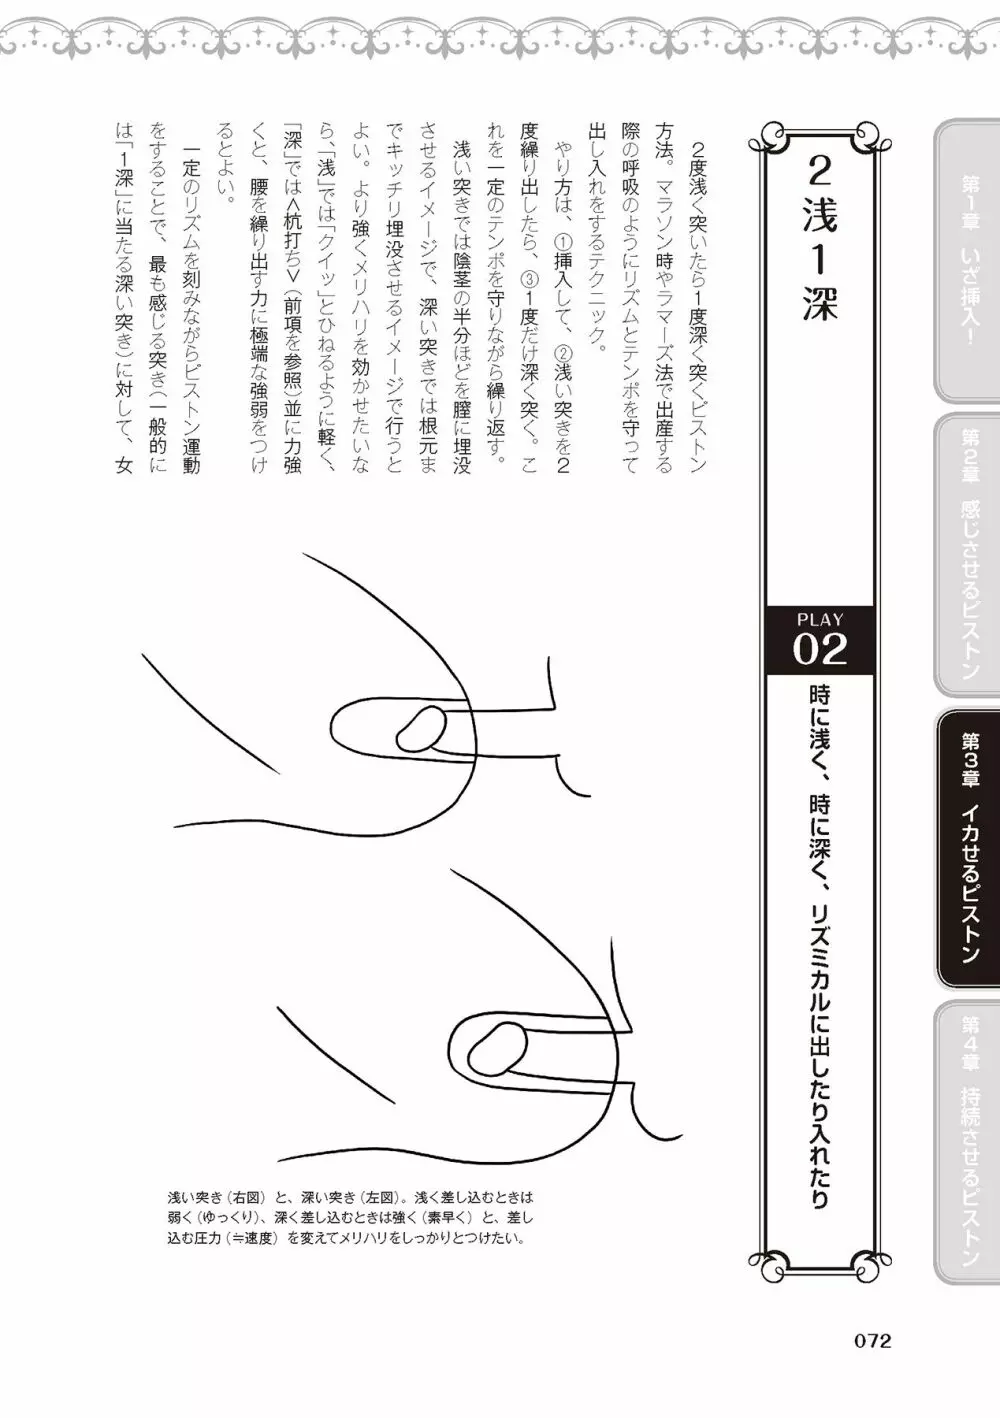 2浅1深
PLAY
02
時に浅く、時に深く、リズミカルに出したり入れたり
2度浅く突いたら1度深く突くピストン
方法。マラソン時やラマーズ法で出産する
際の呼吸のようにリズムとテンポを守って
出し入れをするテクニック。
やり方は、①挿入して、②浅い突きを2
度繰り出したら、③1度だけ深く突く。こ
れを一定のテンポを守りながら繰り返す。
浅い突きでは陰茎の半分ほどを膣に埋没
させるイメージで、深い突きでは根元ま
でキッチリ埋没させるイメージで行うと
よい。より強くメリハリを効かせたいな
ら、「浅」では「クイッ」とひねるように軽く、
「深」では<杭打ち>(前項を参照)並に力強
くと、腰を繰り出す力に極端な強弱をつけ
るとよい。
一定のリズムを刻みながらピストン運動
をすることで、最も感じる突き(一般的に
は「1深」に当たる深い突き)に対して、女
浅い突き(右図)と、深い突き(左図)。浅く差し込むときは
弱く(ゆっくり)、深く差し込むときは強く(素早く)と、差し
込む圧力(≒速度)を変えてメリハリをしっかりとつけたい。
第1章 いざ挿入!
第2章 感じさせるピストン
第3章 イカせるピストン
第4章 持続させるピストン
072